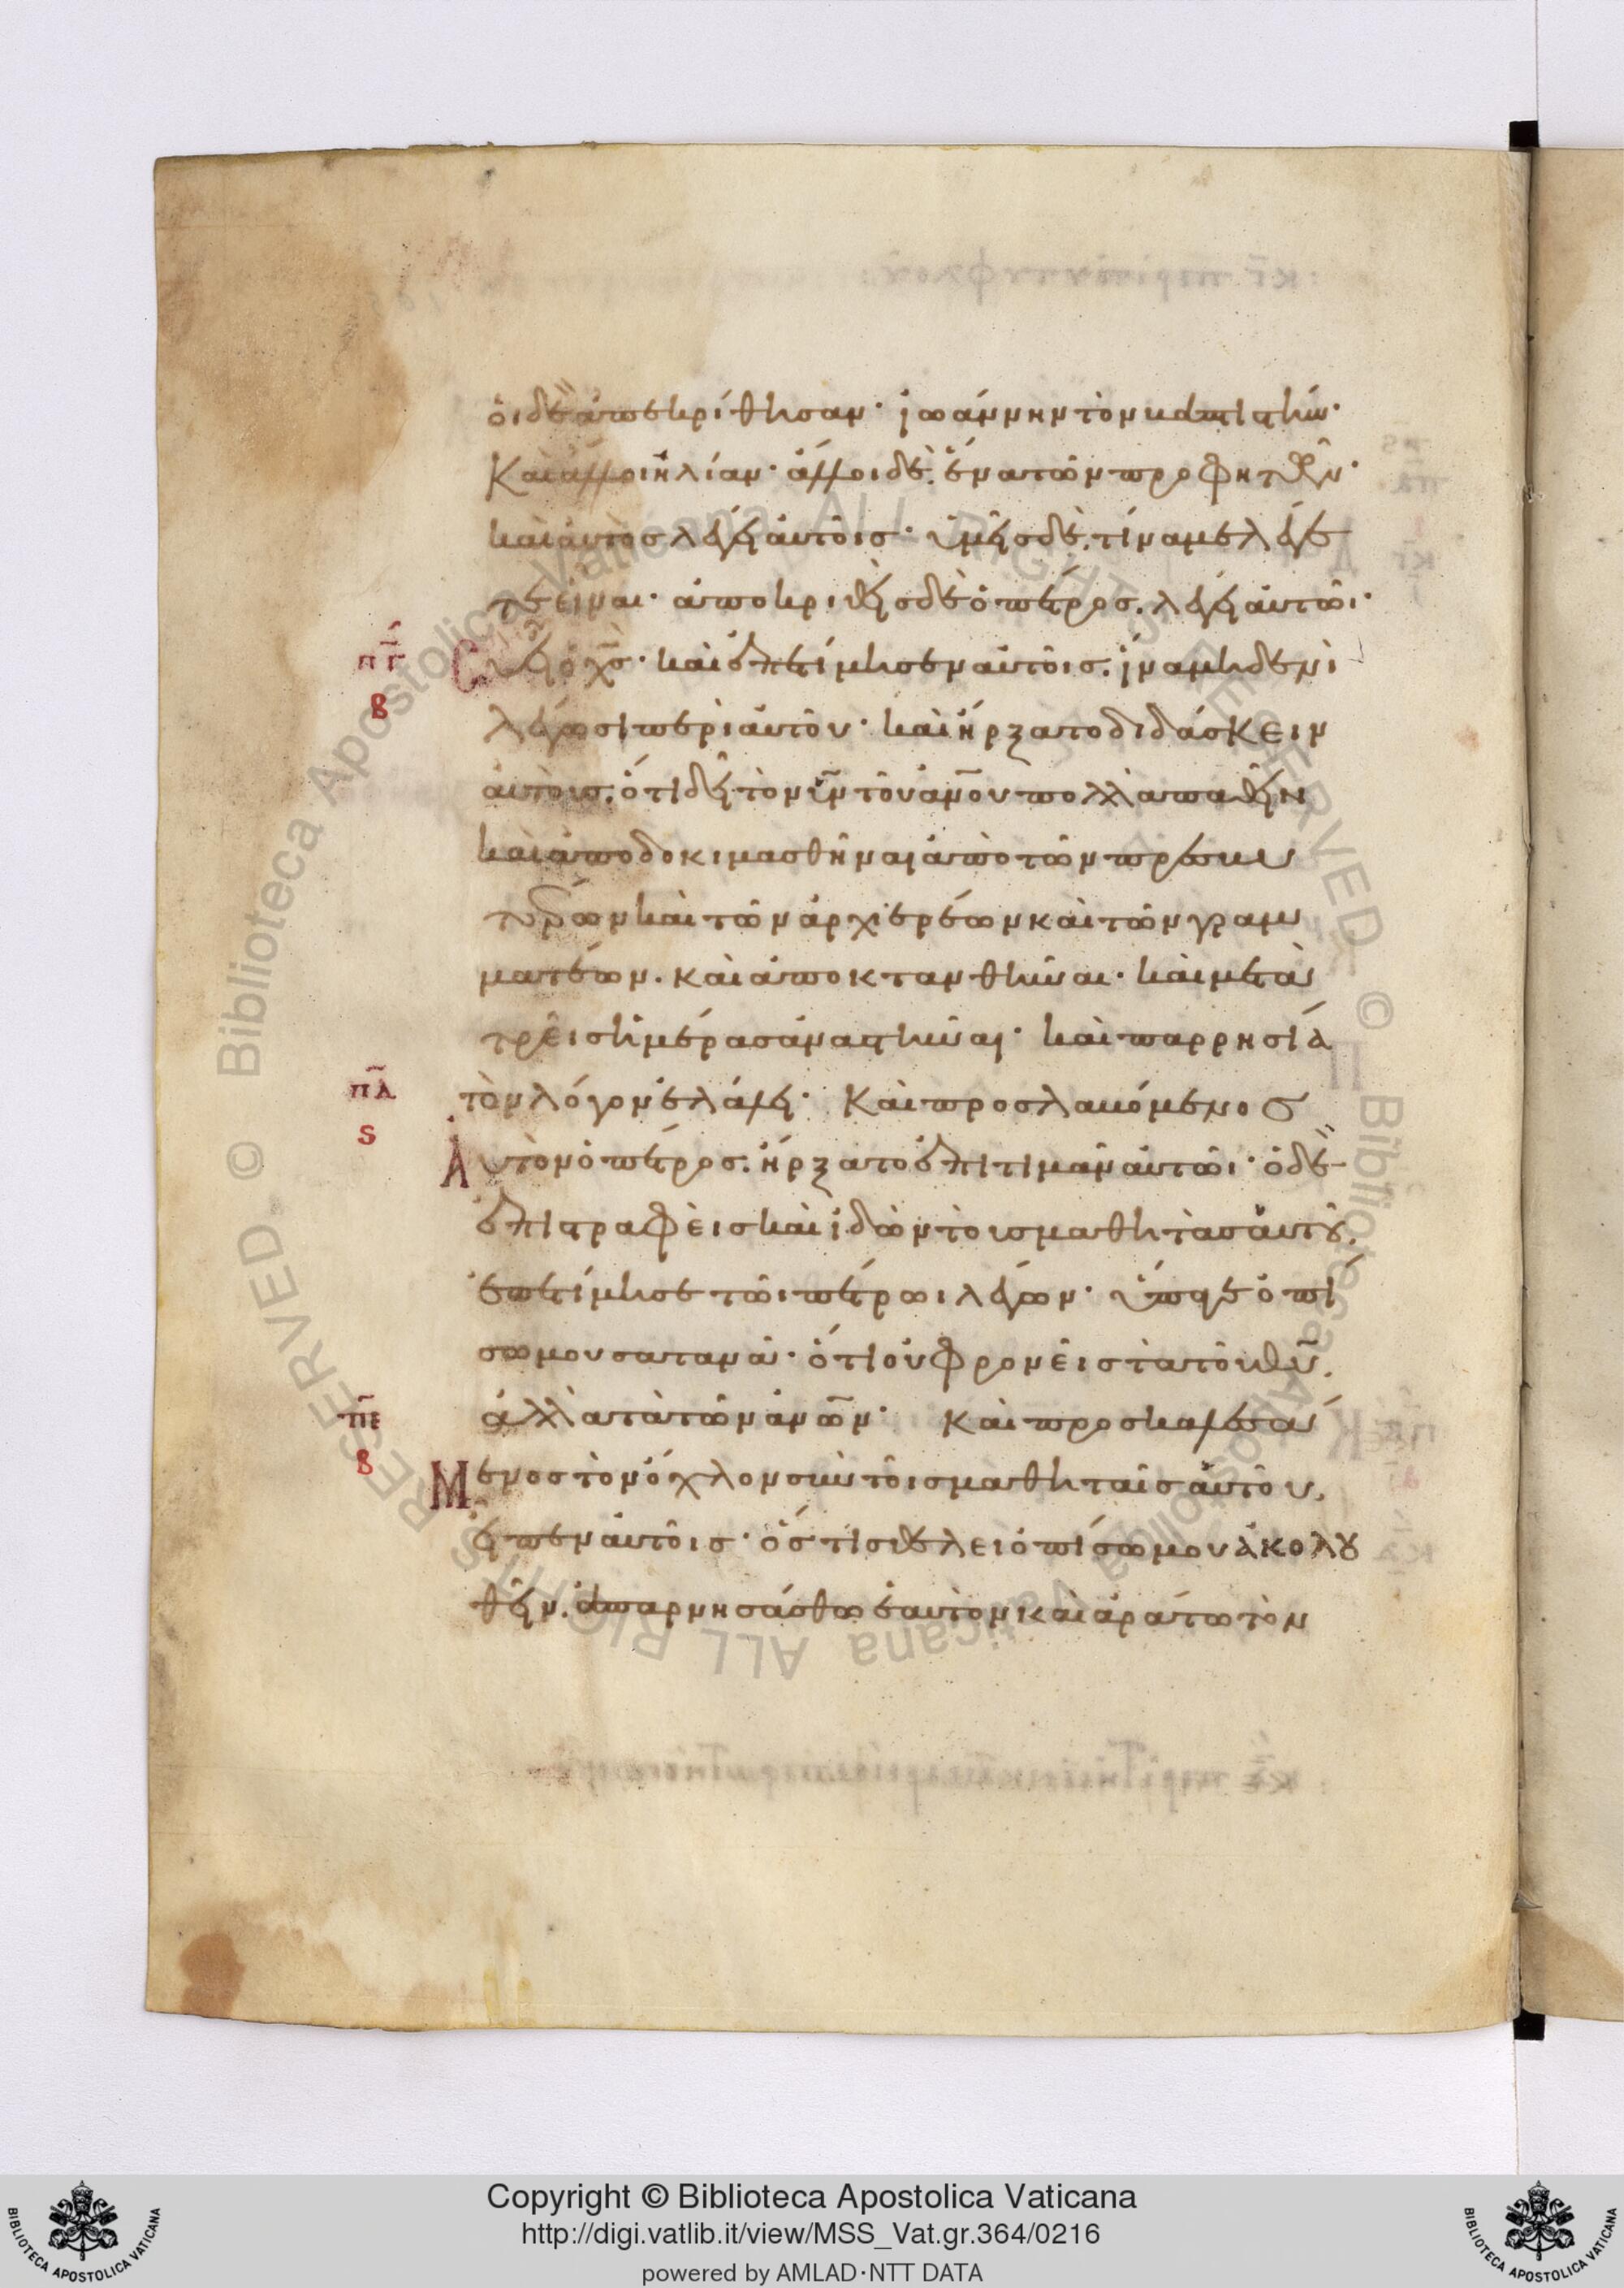 οἱ δὲ ἀπεκρίθησαν· ἰωάννην τὸν βαπτιστήν·
Καὶ ἄλλοι ἠλίαν· ἄλλοι δὲ. ἕνα τῶν προφητῶν·
καὶ αὐτὸς λέγει αὐτοῖς· ὑμεῖς δὲ. τίνα με λέγε
τε εἶναι· ἀποκριθεὶς δὲ ὁ πέτρος. λέγει αὐτῶι·
πγ Cὺ εἶ ὁ χς· καὶ ἐπετίμησεν αὐτοῖς. ἵνα μηδενὶ
β
λέγωσι περὶ αὐτοῦ· καὶ ἤρξατο διδάσκειν
αὐτοὺς. ὅτι δεῖ τὸν υν τοῦ ανου πολλὰ παθεῖν
καὶ ἀποδοκιμασθῆναι ἀπὸ τῶν πρεσβυ
τέρων καὶ τῶν ἀρχιερέων καὶ τῶν γραμ
ματέων. καὶ ἀποκτανθῆναι· καὶ μετὰ
τρεῖς ἡμέρας ἀναστῆναι· καὶ παρρησίᾳ
πδ τὸν λόγον ἐλάλει· Καὶ προσλαβόμενος
ς
Ἀυτὸν ὁ πέτρος. ἤρξατο ἐπιτιμᾶν αὐτῶι· ὁ δὲ
ἐπιστραφεὶς καὶ ἰδὼν τοὺς μαθητὰς αὐτοῦ.
ἐπετίμησε τῶι πέτρωι λέγων· ὕπαγε ὀπί
σω μου σατανᾶ· ὅτι οὐ φρονεῖς τὰ τοῦ θυ.
πε ἀλλὰ τὰ τῶν ανων· Καὶ προσκαλεσά
β
Μενος τὸν ὄχλον σὺν τοῖς μαθηταῖς αὐτοῦ.
εἶπεν αὐτοῖς· ὅστις θέλει ὀπίσω μου ἀκολου
θεῖν. ἀπαρνησάσθω ἑαυτὸν καὶ ἀράτω τὸν
Copyright © Biblioteca Apostolica Vaticana
http://digi.vatlib.it/view/MSS_Vat.gr.364/0216
powered by AMLAD·NTT DATA
BIBLIOTECA APOSTOLICA VATICANA
BIBLIOTECA APOSTOLICA VATICANA